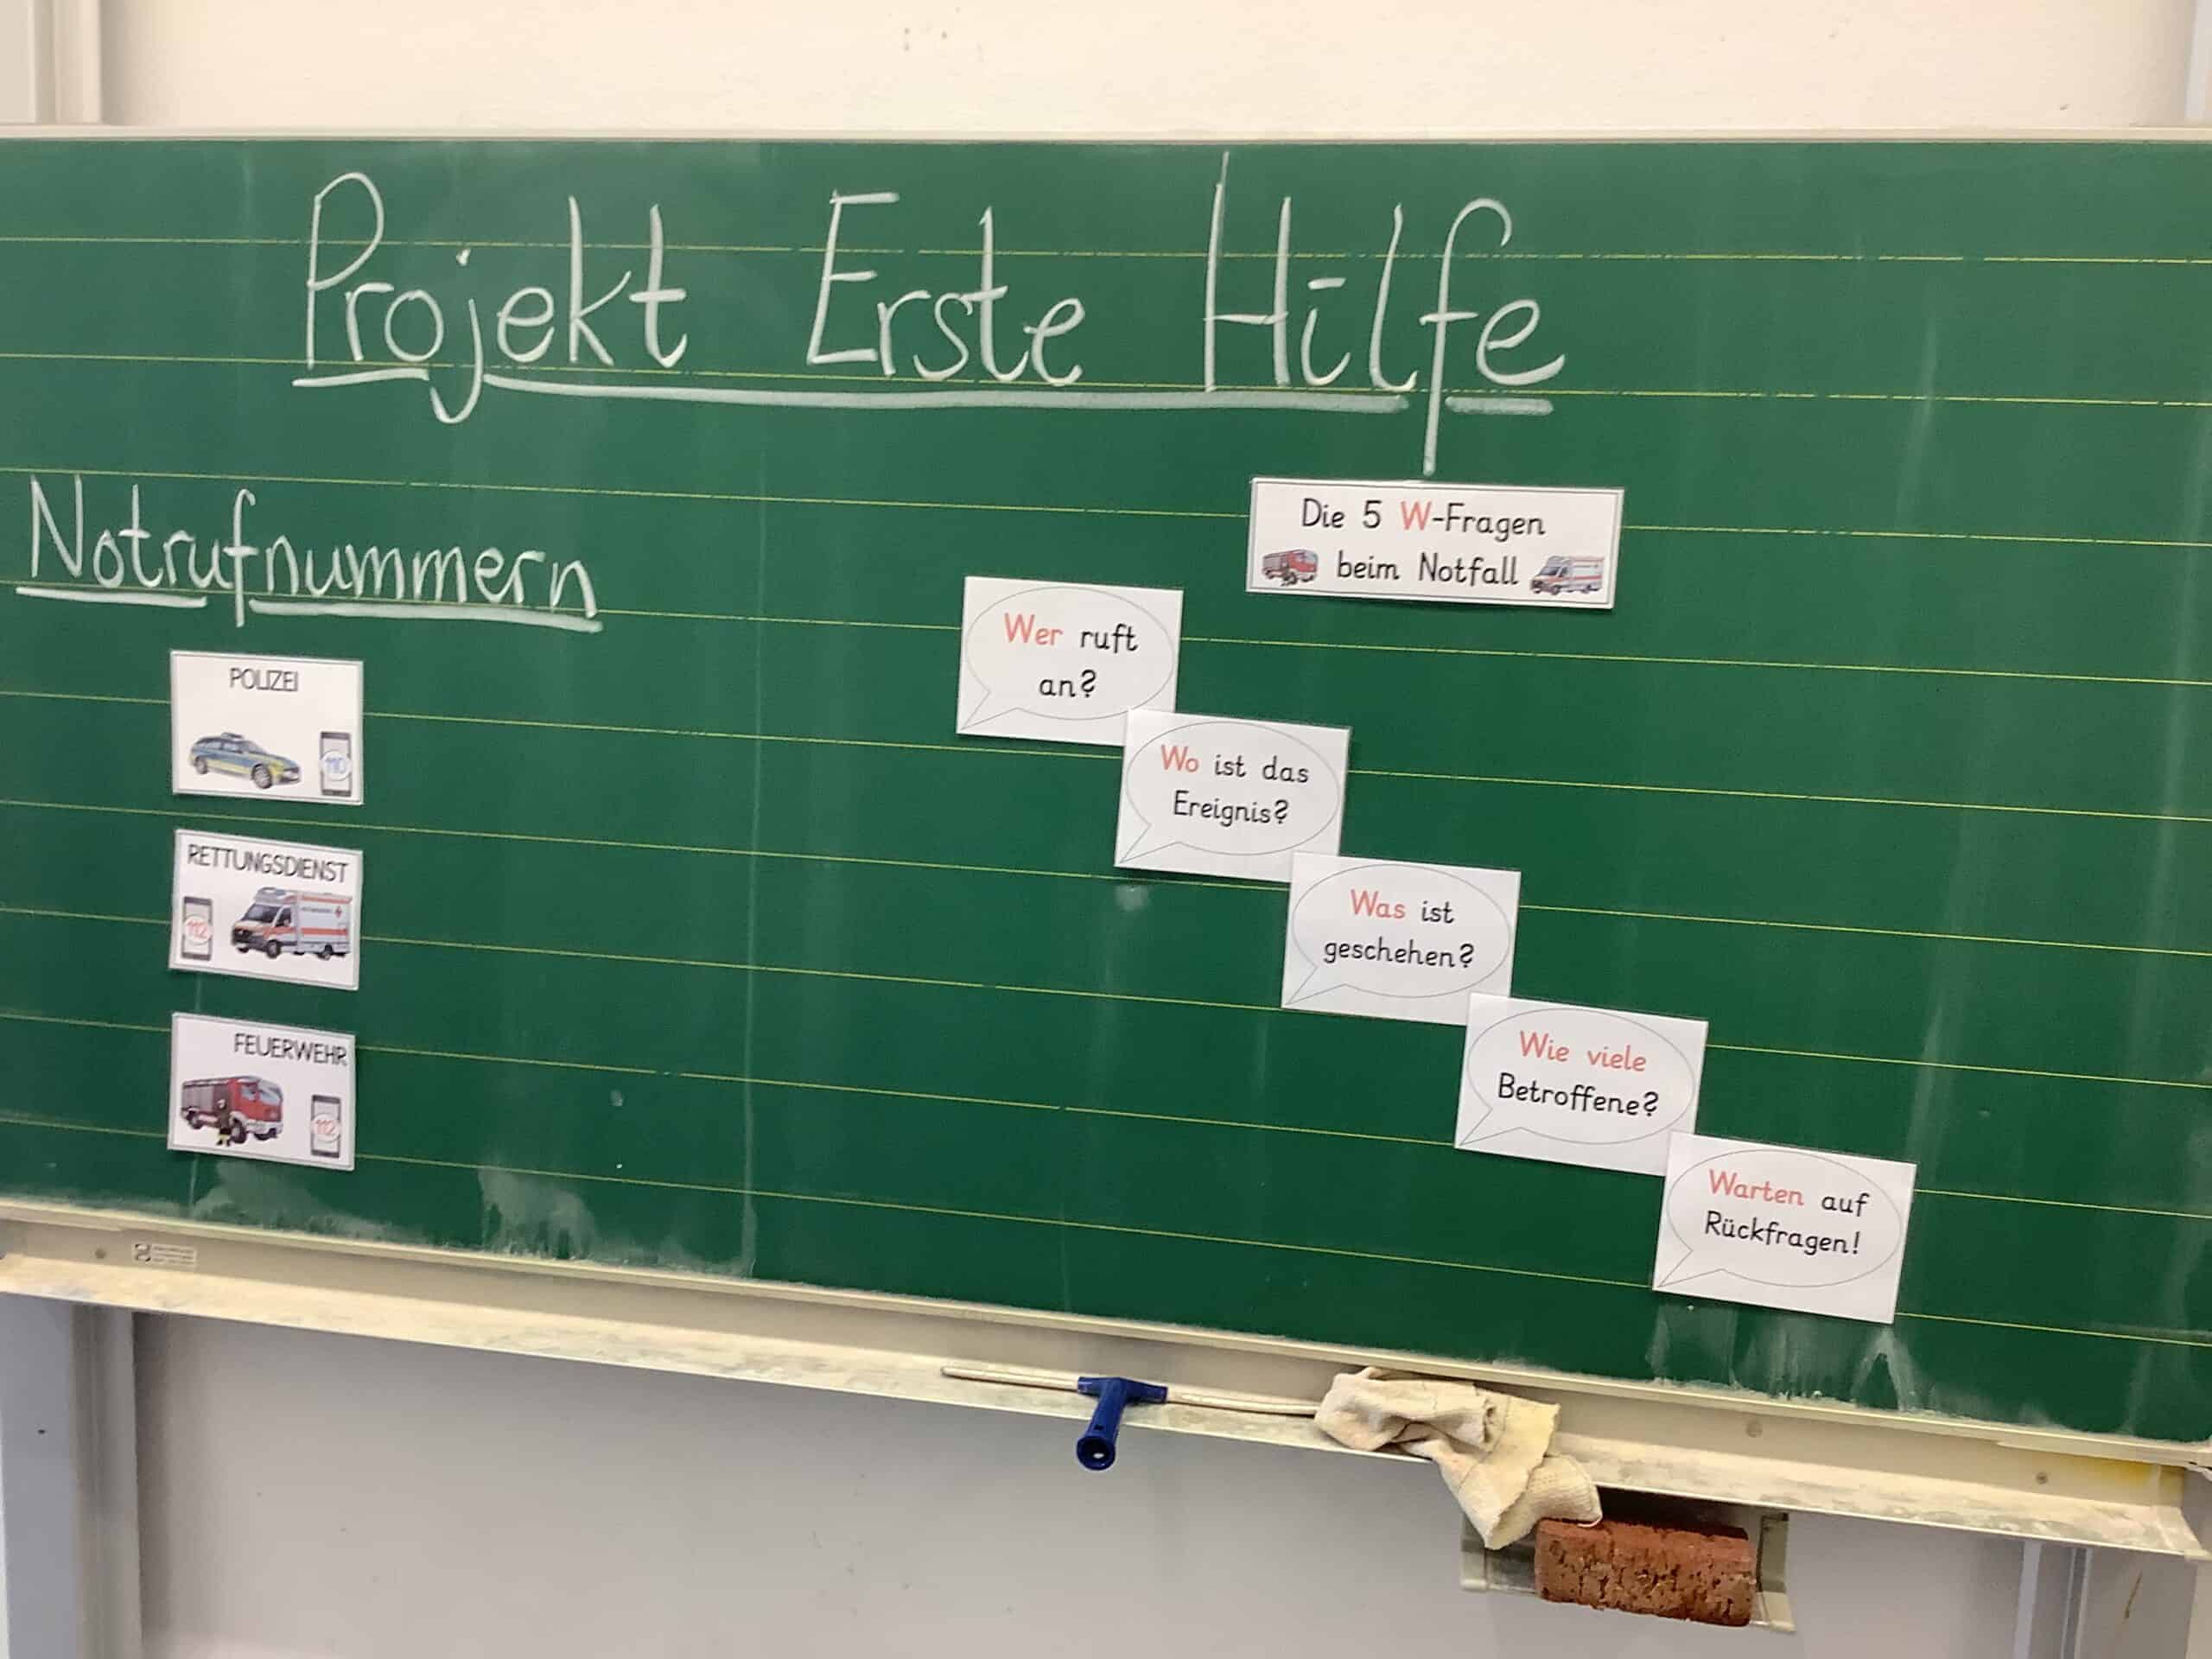 Projekt Erste Hilfe
Notrufnummern
POLIZEI
110
RETTUNGSDIENST
112
FEUERWEHR
112
Die 5 W-Fragen
beim Notfall
Wer ruft
an?
Wo ist das
Ereignis?
Was ist
geschehen?
Wie viele
Betroffene?
Warten auf
Rückfragen!